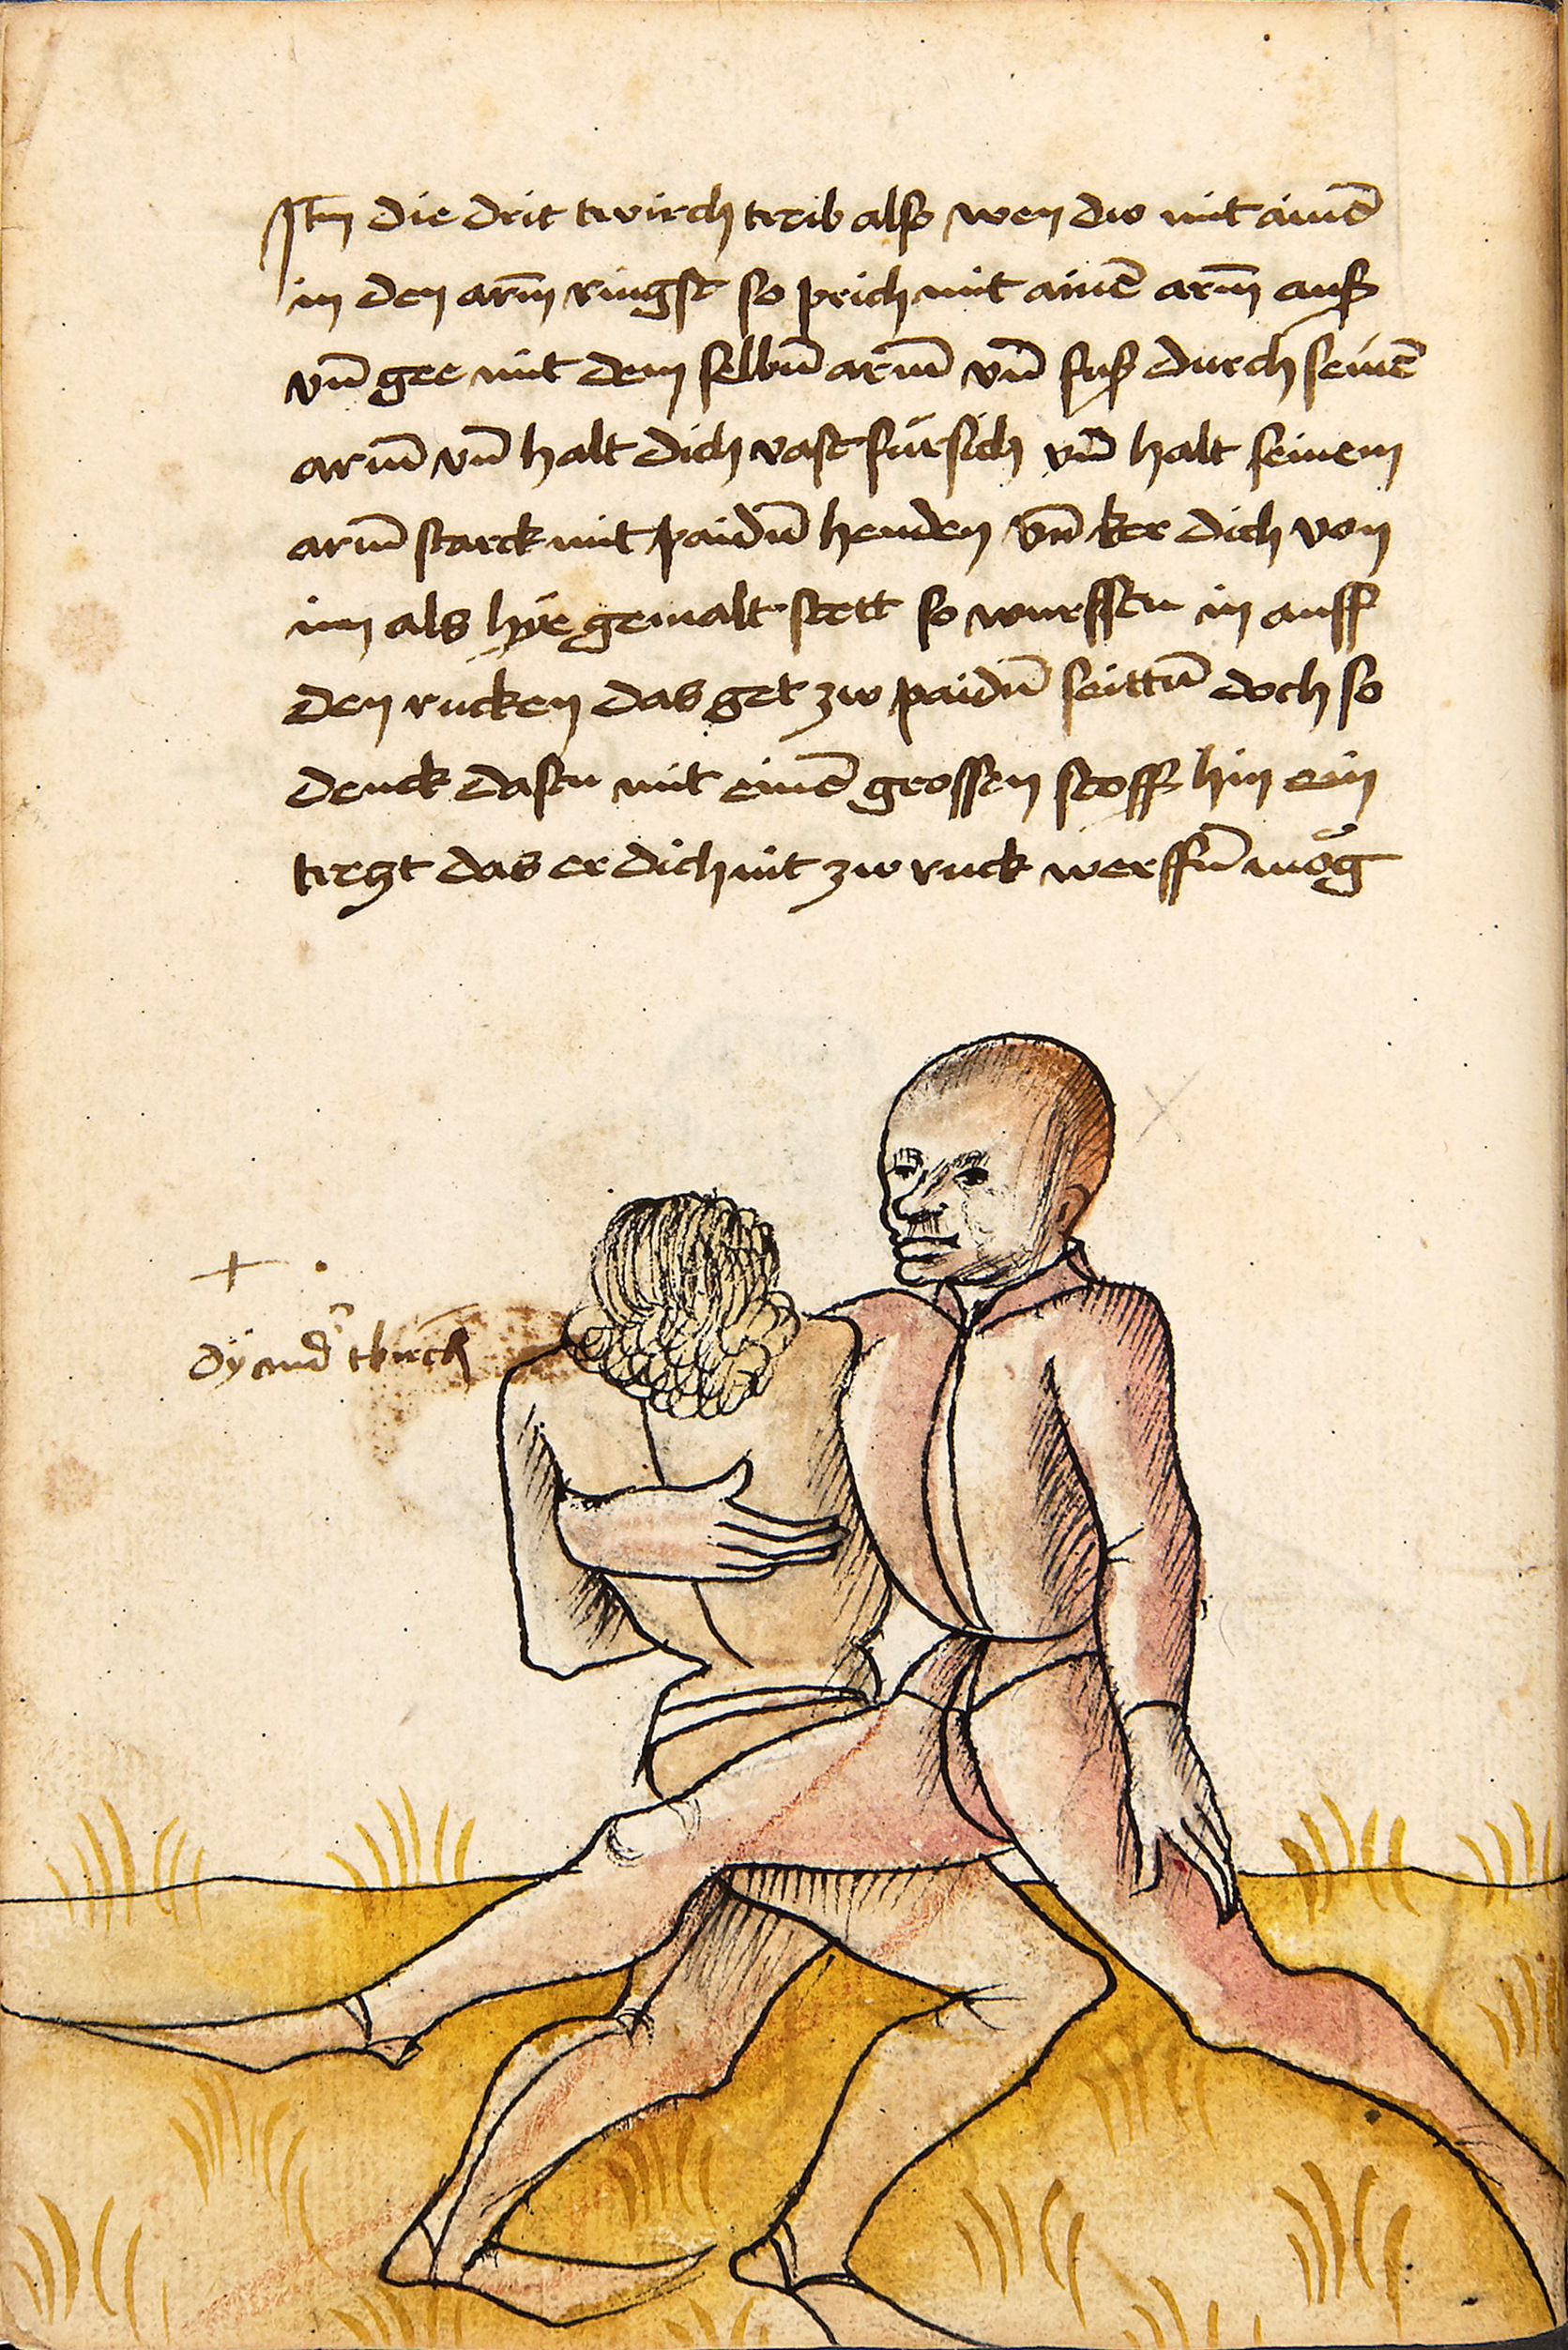 Itm die drit twirch treib also wen dw mit ainē
in den arm̄ ringst so prich mit ainē arm̄ auß
vn̄ gee mit dem selbn̄ arm̄ vn̄ fuß durch seinē
arm̄ vn̄ halt dich vast für sich vn̄ halt seinem
arm̄ starck mit paidn̄ henden vn̄ ker dich von
im als hÿe gemalt stett so wurfstu in auff
den rucken das get zw paidn̄ seittn̄ doch so
denck dastu mit einē grossen stoss hin ein
tretzt das er dich nit zw ruck werffn̄ mög
dÿ and̄ tbirch